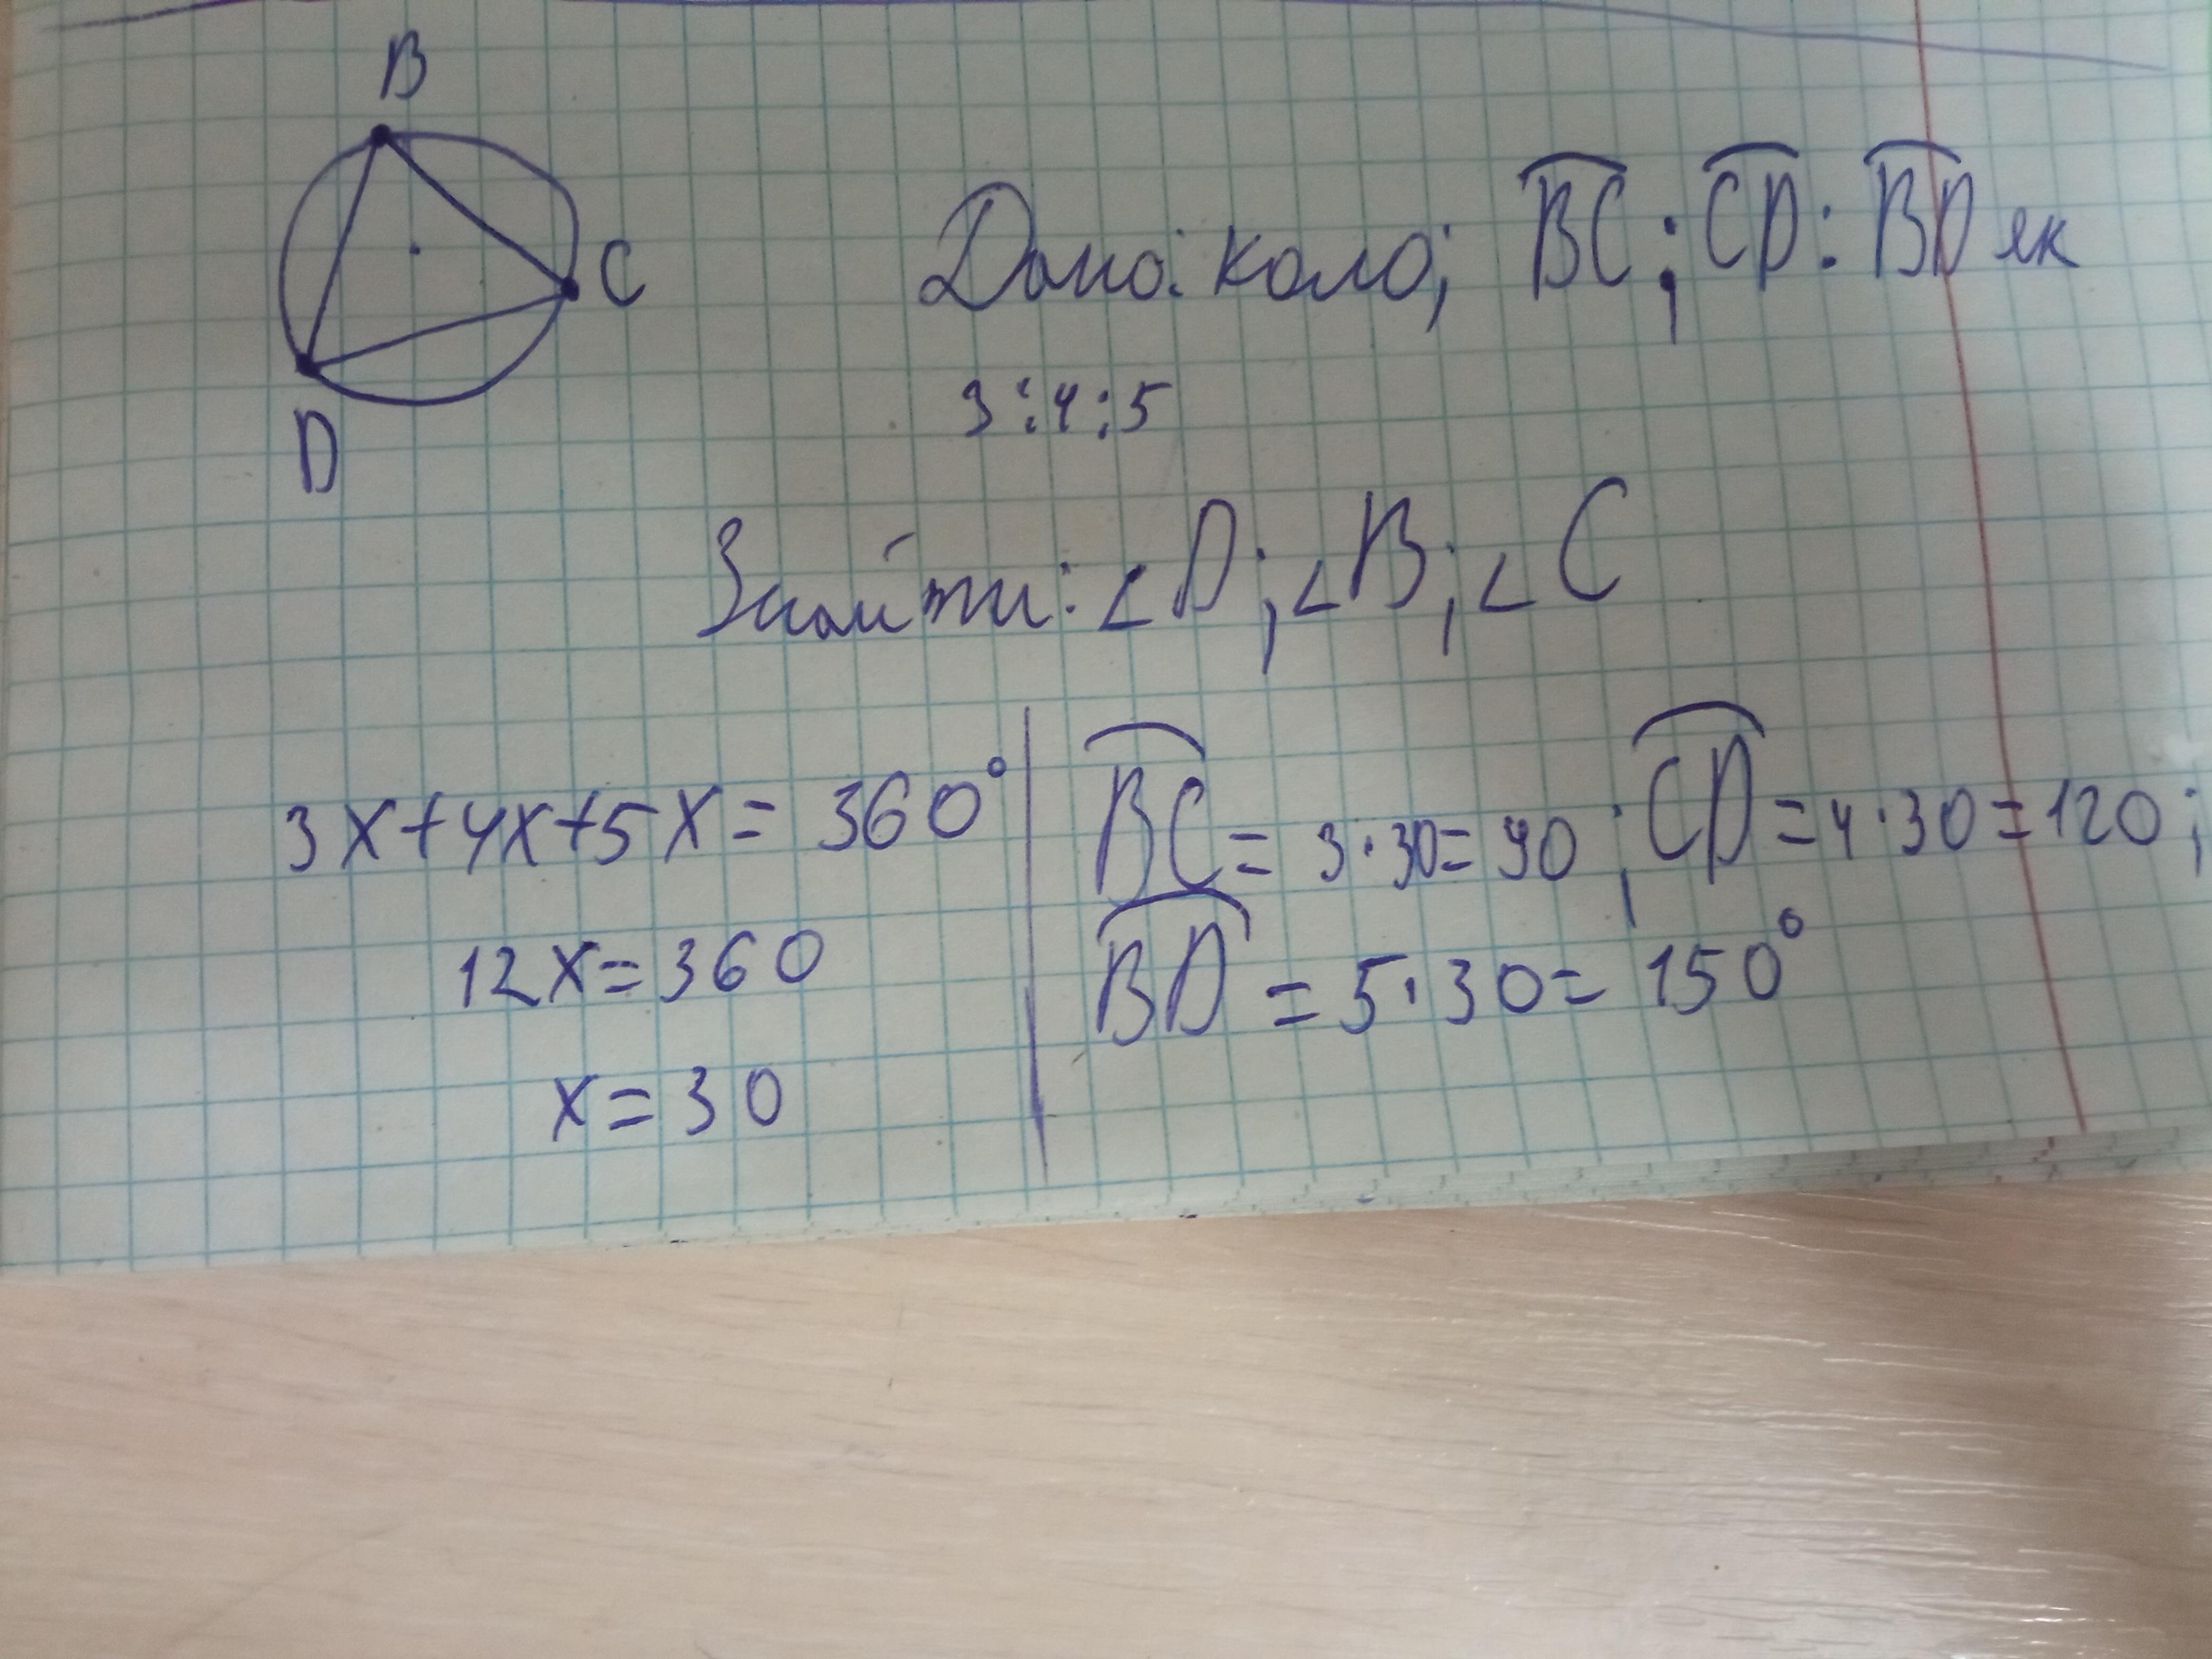 B
C
D
Дано: коло; BC : CD : BD як
3 : 4 : 5
Знайти: ∠D; ∠B; ∠C
3x+4x+5x = 360°
12x = 360
x = 30
BC = 3·30 = 90; CD = 4·30 = 120;
BD = 5·30 = 150°